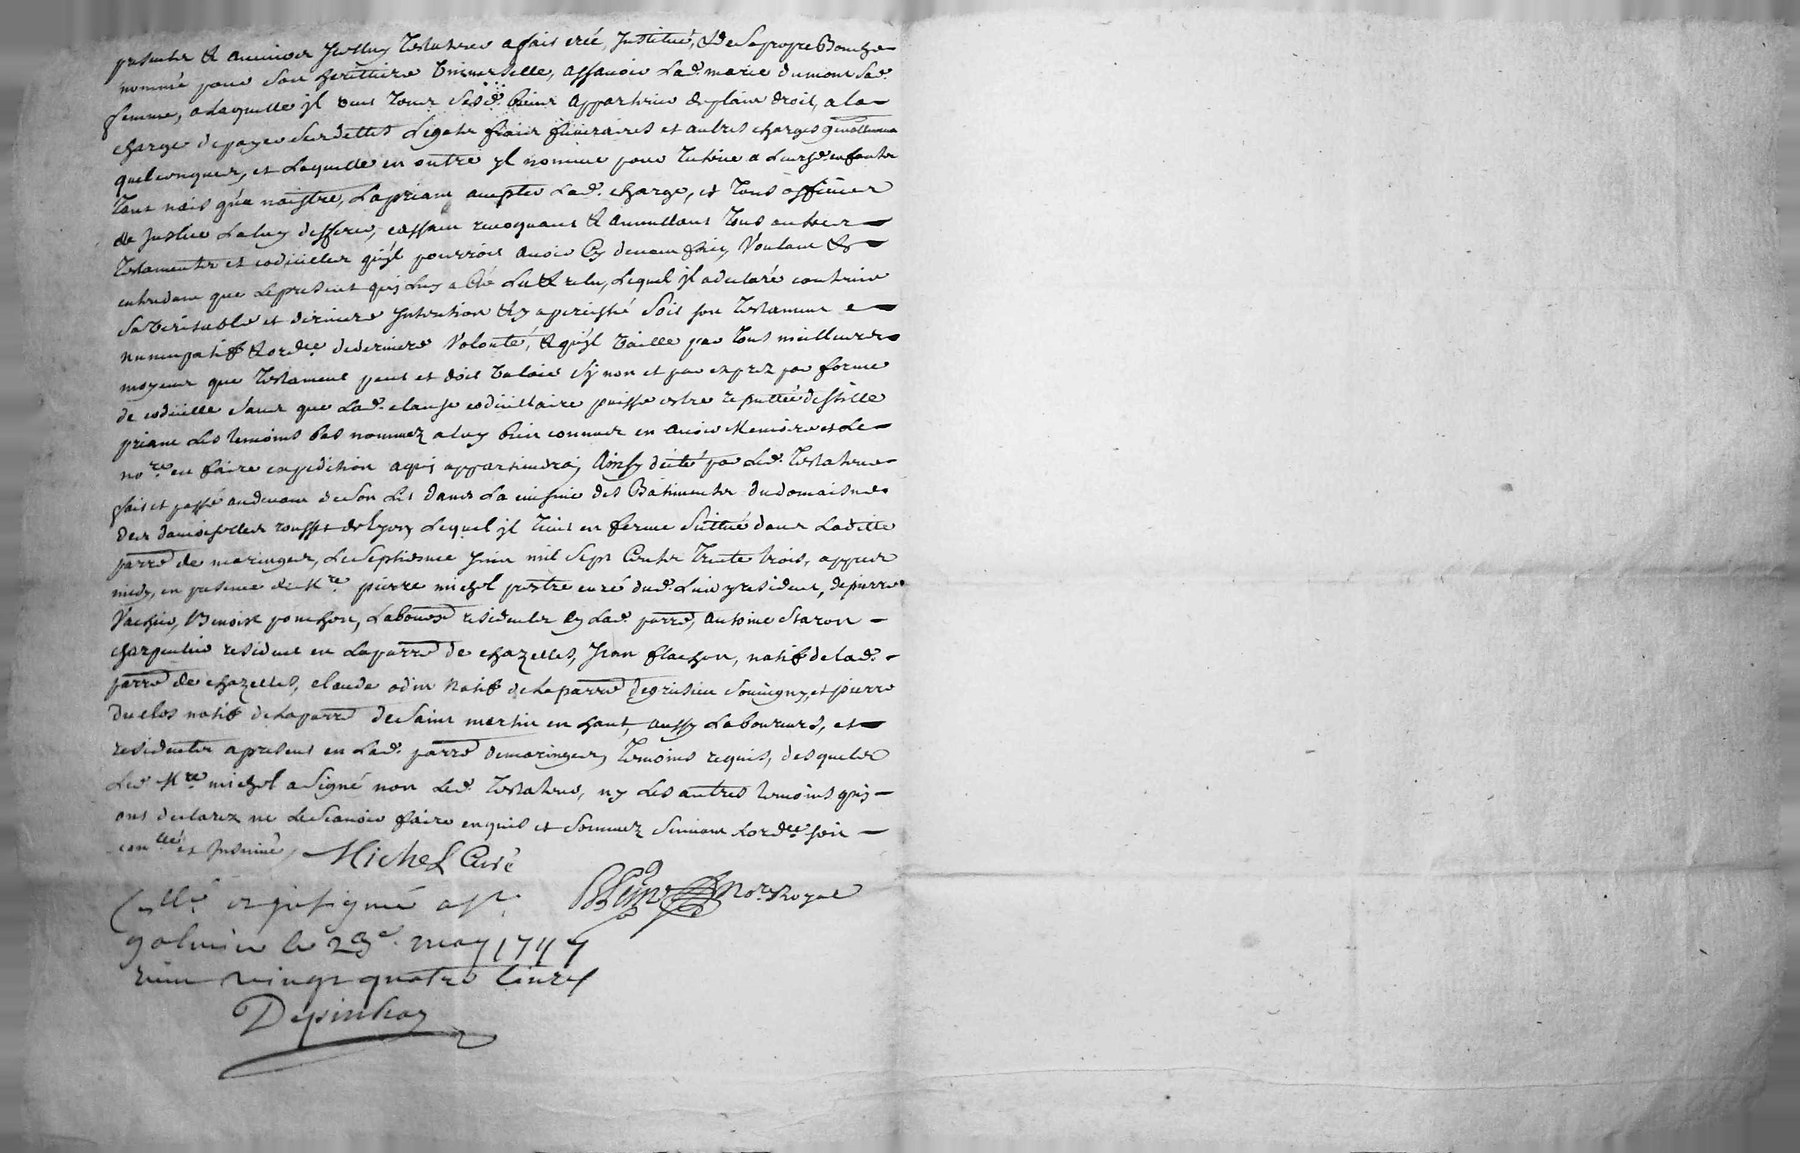 presents & advenir Jcelluy Testateur a fait créé, Institué, & de sa propre Bouche
nommé pour son heritiere Universelle, assavoir Lad. marie dumont sad.
femme, a Laquelle jl veut tous sesd. biens appartenir de plain droit, a la
charge de payer ses dettes Legats frais funeraires et autres charges
quelconques, et Laquelle en outre jl nomme pour Tutrice a Leursd. enfants
tant nais qu'a naistre, La priant accepter Lad. charge, et tous officiers
de Justice La luy defferer, cassant revoquant & annullant tous autres
Testaments et codicilles qu'jl pourroit avoir Cy devant faits Voulant &
entendant que Le present quj Luy a été Lu & relu, Lequel jl a declaré contenir
sa veritable et derniere Intention & y a percisté soit son Testament
nuncupatif & ord.ce de derniere Volonté, & qu'jl vaille par tous meilleurs
moyens que Testament peut et doit valoir sy non et par exprez par forme
de codicille sans que Lad. clause codicillaire puisse estre reputtée de stille
priant Les temoins bas nommez a luy bien connus en avoir Memoire et Le
no.re en faire expedition a quj appartiendra, Ainsy dicté par Led. Testateur
fait et passé au devant de son Lit dans La cuisine des Batiments du domaine
des damoiselles rousset de Lyon, Lequel jl tient en ferme scittué dans Laditte
parre de maringes, Le septiesme Juin mil sept Cents trente trois, appres
midy, en presence de M.re pierre michel prestre curé dud. Lieu y resident, de pierre
Vachier, Benoist ponchon, Laboureurs residents en Lad. parre, antoine staron
charpentier resident en La parre de chazelles, Jean flachon, natif de lad.
parre de chazelles, claude odin natif de La parre de grisieu souvigny, et pierre
duclos natif de La parre de Saint martin en haut, aussy Laboureurs, et
residents a present en Lad. parre de maringes, temoins requis, desquels
Led. M.re michel a signé non Led. Testateur, ny Les autres temoins quj
ont declarez ne Le scavoir faire enquis et sommez suivant Lord.ce soit
con.llé et Insinué, Michel Curé
No.re Royal
Con.llé et jnsinué a St.
galmier le 23e. may 1747
reçu vingt quatre livres
Depinhac